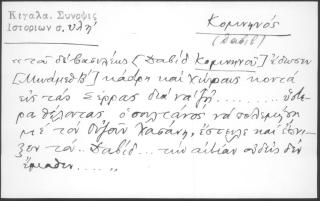 Κιγάλα. Σύνοψις
Ἱστοριῶν σ. υλή
Κομνηνός
(Δαβίδ)
"τὸ δὲ βασιλέως [Δαβίδ Κομνηνοῦ] ἔδωσεν
[Μωάμεθ Β'] κάστρη καὶ χώρας κοντὰ
εἰς τὰς Σέρρας διὰ νὰ ζῇ ....... ὕστε
ρα θέλοντας, ὁ σουλτάνος νὰ πολεμήσῃ
μὲ τὸν Οὐζοῦν Χασάνη, ἔστειλε καὶ
τὸν .. Δαβίδ ... τὴν αἰτίαν οὐδεὶς δὲν
ἔμαθεν ..... "